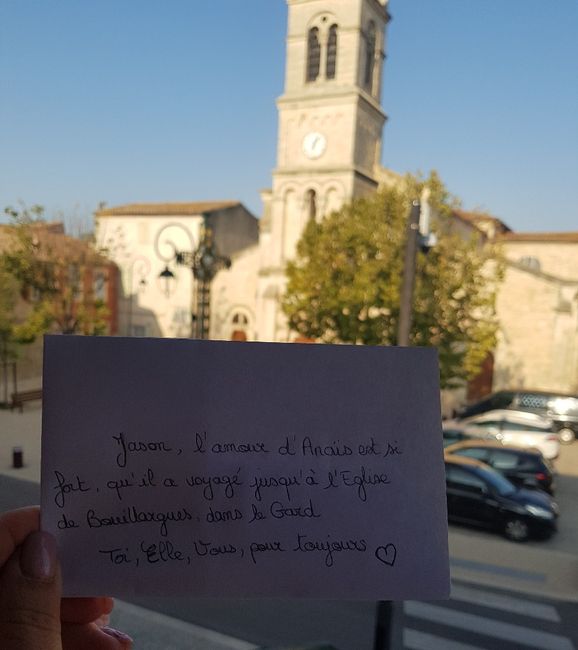 Jason, l'amour d'Anaïs est si
fort, qu'il a voyagé jusqu'à l'Eglise
de Bouillargues, dans le Gard
Toi, Elle, Vous, pour toujours ♡